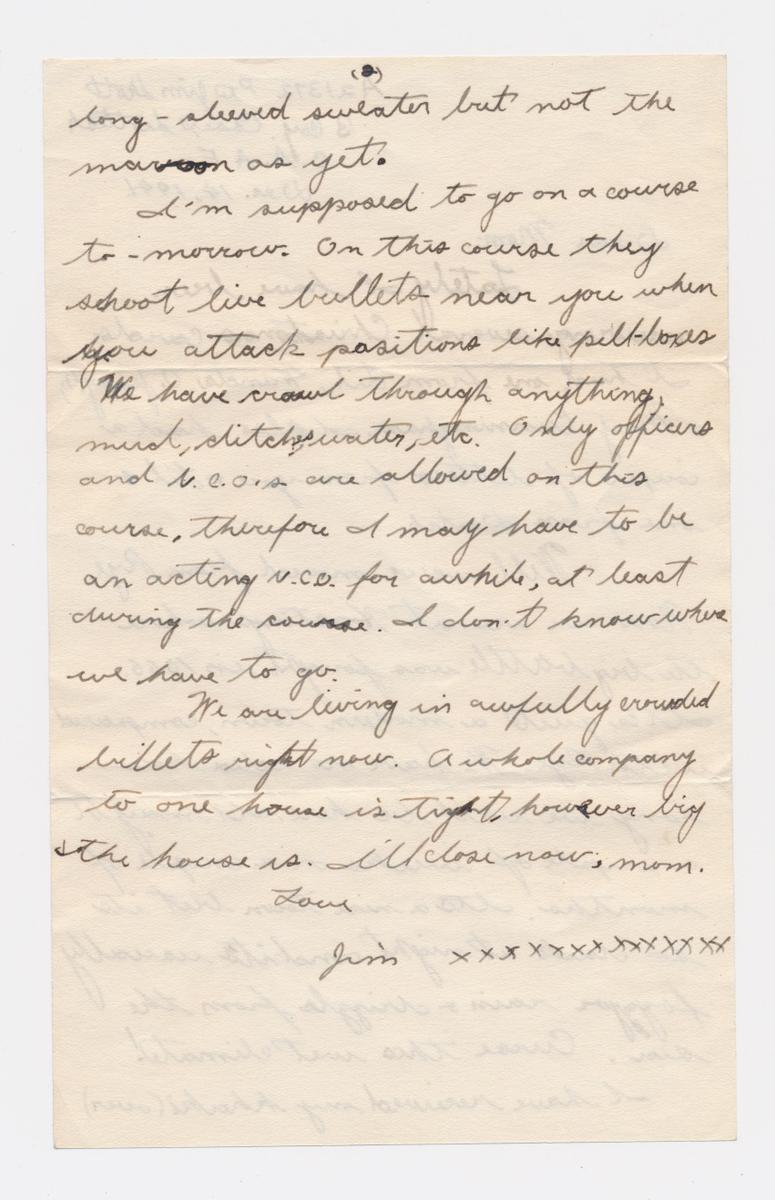 (2)
long-sleeved sweater but not the
maroon as yet.
I'm supposed to go on a course
to-morrow. On this course they
shoot live bullets near you when
you attack positions like pill-boxes
We have crawl through anything,
mud, ditch water, etc. Only officers
and N.C.O.s are allowed on this
course, therefore I may have to be
an acting N.C.O. for awhile, at least
during the course. I don't know where
we have to go.
We are living in awfully crowded
billets right now. A whole company
to one house is tight, however big
the house is. I'll close now, mom.
Love
Jim xxxxxxxxxxxxxx